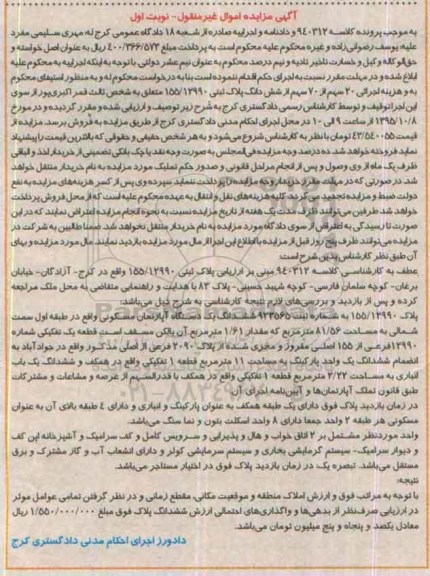 آگهی مزایده اموال غیرمنقول- نوبت اول
به موجب پرونده کلاسه ۹۴۰۳۱۲ و دادنامه و اجراییه صادره از شعبه ۱۸ دادگاه عمومی کرج له مهری سلیمی مفرد
علیه یوسف رضوانی‌زاده و غیره محکوم علیه محکوم است به پرداخت مبلغ ۴۰۰/۳۶۶/۵۷۳ ریال به عنوان اصل خواسته و
حق‌الوکاله وکیل و خسارت تاخیر تادیه و نیم درصد محکوم به عنوان نیم عشر دولتی. با توجه به اینکه اجراییه به محکوم علیه
ابلاغ شده و در مهلت مقرر نسبت به اجرای حکم اقدام ننموده است بنا به درخواست محکوم له و به منظور استیفای محکوم
به و هزینه اجرائی ۲۰ سهم از ۷۰ سهم از شش دانگ پلاک ثبتی ۱۵۵/۱۲۹۹۰ متعلق به شخص ثالث قمر اکبری‌پور از سوی
این اجرا توقیف و توسط کارشناس رسمی دادگستری کرج به شرح زیر توصیف و ارزیابی شده و مقرر گردیده و در مورخ
۱۳۹۵/۱۰/۸ از ساعت ۹ الی ۱۰ در محل اجرای احکام مدنی دادگستری کرج از طریق مزایده به فروش برسد. مزایده از
قیمت ۴۳/۵۴۰۰۵۵ تومان با نظر به کارشناس شروع می‌شود و به هر شخص حقیقی و حقوقی که بالاترین قیمت را پیشنهاد
نماید فروخته خواهد شد. ده درصد وجه مزایده فی‌المجلس به صورت وجه نقد یا چک بانکی تضمینی از خریدار اخذ و الباقی
ظرف یک ماه از وی وصول و پس از انجام مراحل قانونی و صدور حکم تملیک مورد مزایده به نام خریدار منتقل خواهد
شد. در صورتی که در مهلت مقرر خریدار وجه مزایده را پرداخت ننماید سپرده وی پس از کسر هزینه‌های مزایده به نفع
دولت ضبط و مزایده تجدید می‌گردد. کلیه هزینه‌های نقل و انتقال به عهده محکوم علیه است که از محل فروش پرداخت
خواهد شد. طرفین می‌توانند ظرف مدت یک هفته از تاریخ مزایده نسبت به نحوه انجام مزایده اعتراض نمایند که در این
صورت تا رسیدگی به اعتراض از سوی دادگاه مورد مزایده به نام خریدار منتقل نخواهد شد. ضمنا طالبین به شرکت در
مزایده می‌توانند ظرف پنج روز قبل از مزایده با اطلاع این اجرا از مال مورد مزایده بازدید نمایند. مال مورد مزایده و بهای
آن طبق نظر کارشناس بدین شرح است:
عطف به کارشناسی کلاسه ۹۴۰۳۱۲ مبنی بر ارزیابی پلاک ثبتی ۱۵۵/۱۲۹۹۰ واقع در کرج- آزادگان- خیابان
برغان- کوچه سلمان فارسی- کوچه شهید حسینی- پلاک ۸۳ با هدایت و راهنمایی متقاضی به محل ملک مراجعه
کرده و پس از بازدید و بررسی‌های لازم نتیجه کارشناسی به شرح ذیل می‌باشد:
پلاک ۱۵۵/۱۲۹۹۰ به شماره ثبت ۹۲۳۵۶۵ ششدانگ یک دستگاه آپارتمان مسکونی واقع در طبقه اول سمت
شمالی به مساحت ۸۱/۵۶ مترمربع که مقدار ۱/۶۱ مترمربع آن بالکن مسقف است قطعه یک تفکیکی شماره
۱۲۹۹۰ فرعی از ۱۵۵ اصلی مفروز و مجزی شده از پلاک ۲۰۹۰ فرعی از اصلی مذکور واقع در جوادآباد به
انضمام ششدانگ یک واحد پارکینگ به مساحت ۱۱ مترمربع قطعه ۱ تفکیکی واقع در همکف و ششدانگ یک باب
انباری به مساحت ۳/۲۲ مترمربع قطعه ۱ تفکیکی واقع در همکف با قدرالسهم از عرصه و مشاعات و مشترکات
طبق قانون تملک آپارتمان‌ها و آیین‌نامه اجرای آن
در زمان بازدید پلاک فوق دارای یک طبقه همکف به عنوان پارکینگ و انباری و دارای ۴ طبقه بالای آن به عنوان
مسکونی هر طبقه ۲ واحد جمعا دارای ۸ واحد اسکلت بتون و نما سنگ می‌باشد.
واحد موردنظر مشتمل بر ۲ اتاق خواب و هال و پذیرایی و سرویس کامل و کف سرامیک و آشپزخانه اپن کف
و دیوار سرامیک- سیستم گرمایشی بخاری و سیستم سرمایشی کولر و دارای انشعاب آب و گاز مشترک و برق
مستقل می‌باشد. تبصره یک: در زمان بازدید پلاک فوق در اختیار مستاجر می‌باشد.
نتیجه:
با توجه به مراتب فوق و ارزش املاک منطقه و موقعیت مکانی، مقطع زمانی و در نظر گرفتن تمامی عوامل موثر
در ارزیابی صرف‌نظر از بدهی‌ها و واگذاری‌های احتمالی ارزش ششدانگ پلاک فوق مبلغ ۱/۵۵۰/۰۰۰/۰۰۰ ریال
معادل یکصد و پنجاه و پنج میلیون تومان می‌باشد.
دادورز اجرای احکام مدنی دادگستری کرج